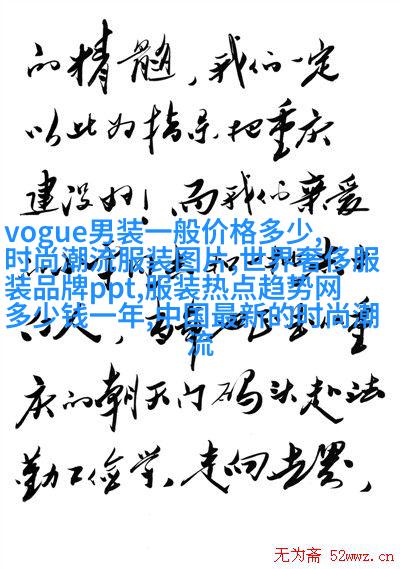 的精髓，我们一定
以此为指导把重庆
建设好！而我们亲爱
vogue男装一般价格多少,
时尚潮流服装图片,世界奢侈服
装品牌ppt,服装热点趋势网
多少钱一年,中国最新的时尚潮
流
庆的朝天门码头赴法
勤工俭学，走向世界，
无为斋 52wwz.cn